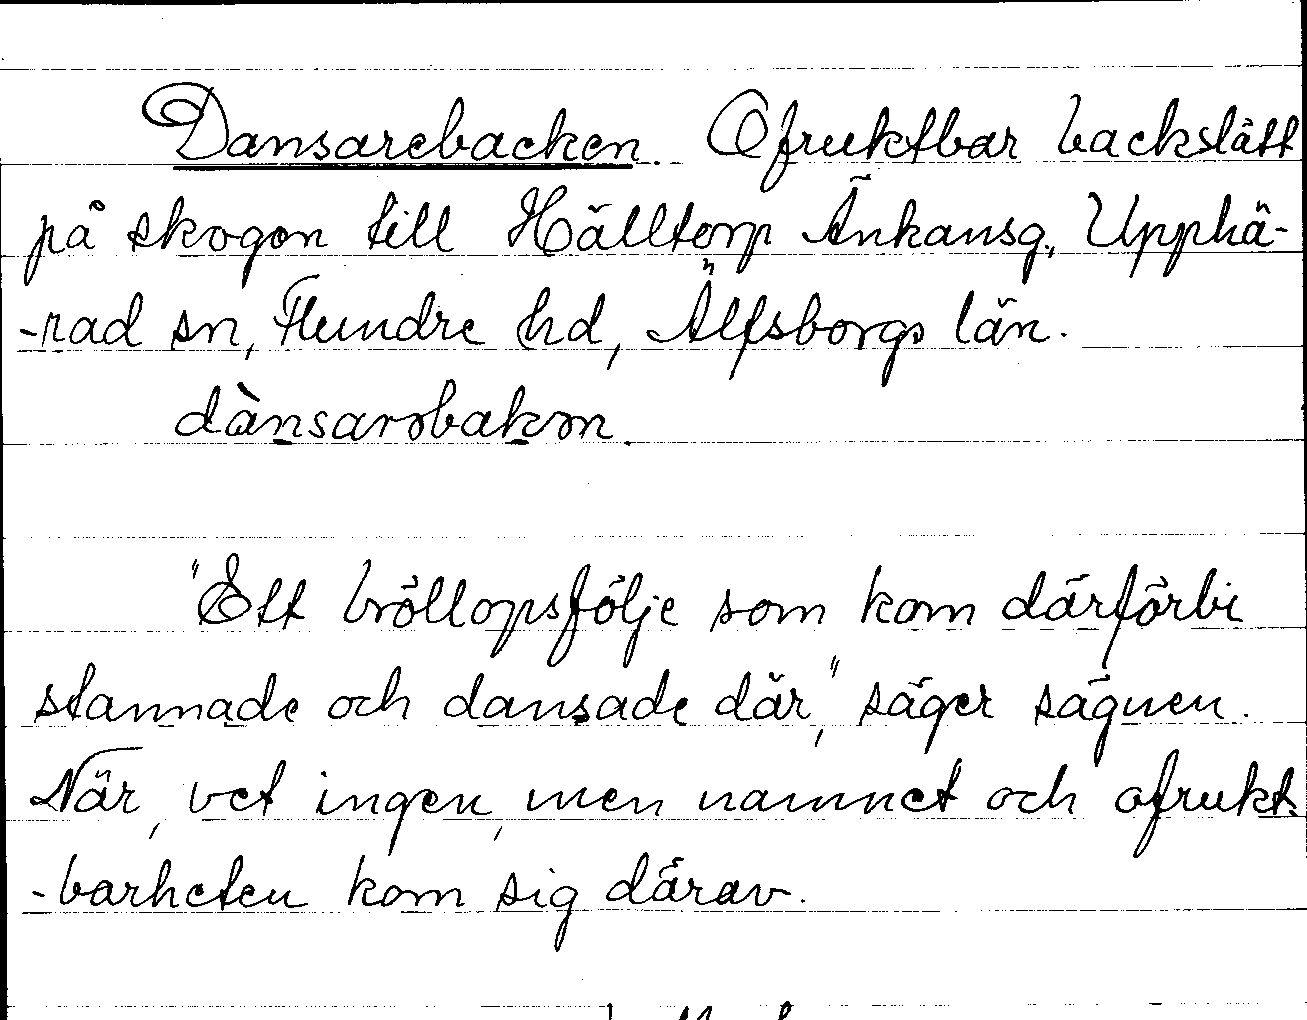 Dansarebacken. Ofruktbar backslätt
på skogen till Hälltorp Änkansg., Upphä-
-rad sn, Flundre hd, Älfsborgs län.
dànsarəbakən.
"Ett bröllopsfölje som kom därförbi
stannade och dansade där," säger sägnen.
När, vet ingen, men namnet och ofrukt-
-barheten kom sig därav.